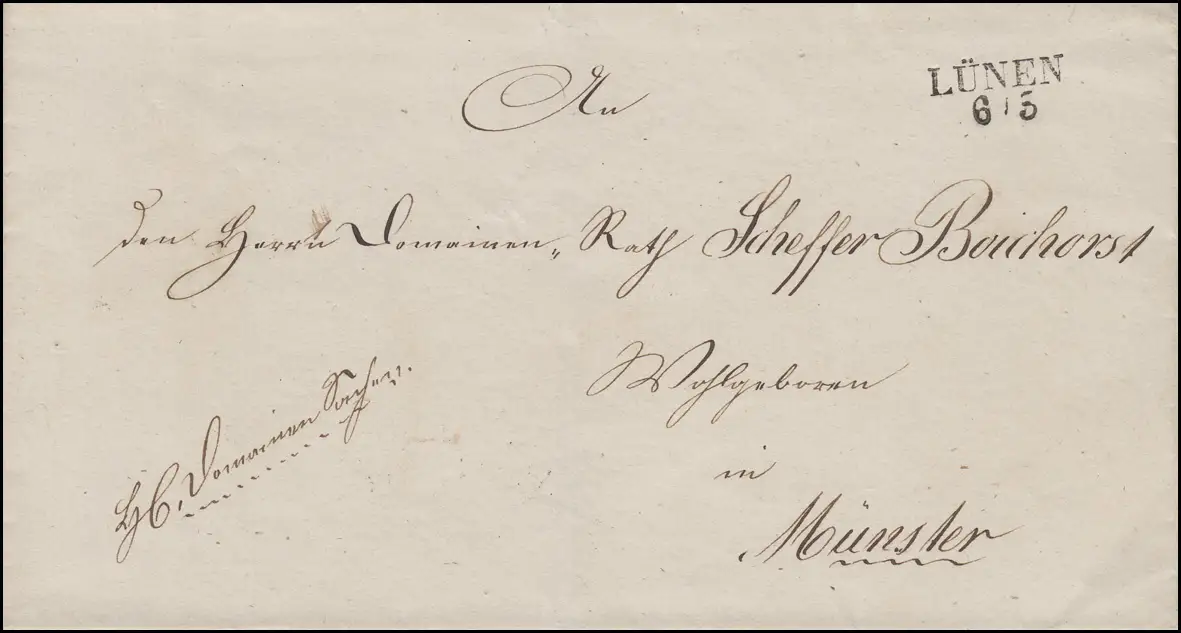 An
LÜNEN
6 5
den Herrn Domainen„ Rath Scheffer Boichorst
Wohlgeboren
in
Münster
HC, Domainen Sachen.